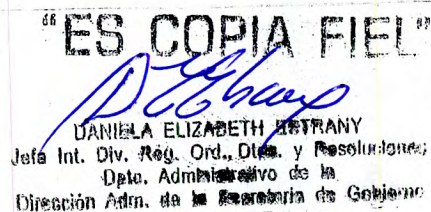 "ES COPIA FIEL"
DANIELA ELIZABETH ESTRANY
Jefa Int. Div. Reg. Ord., Dtos. y Resoluciones
Dpto. Administrativo de la
Dirección Adm. de la Secretaria de Gobierno